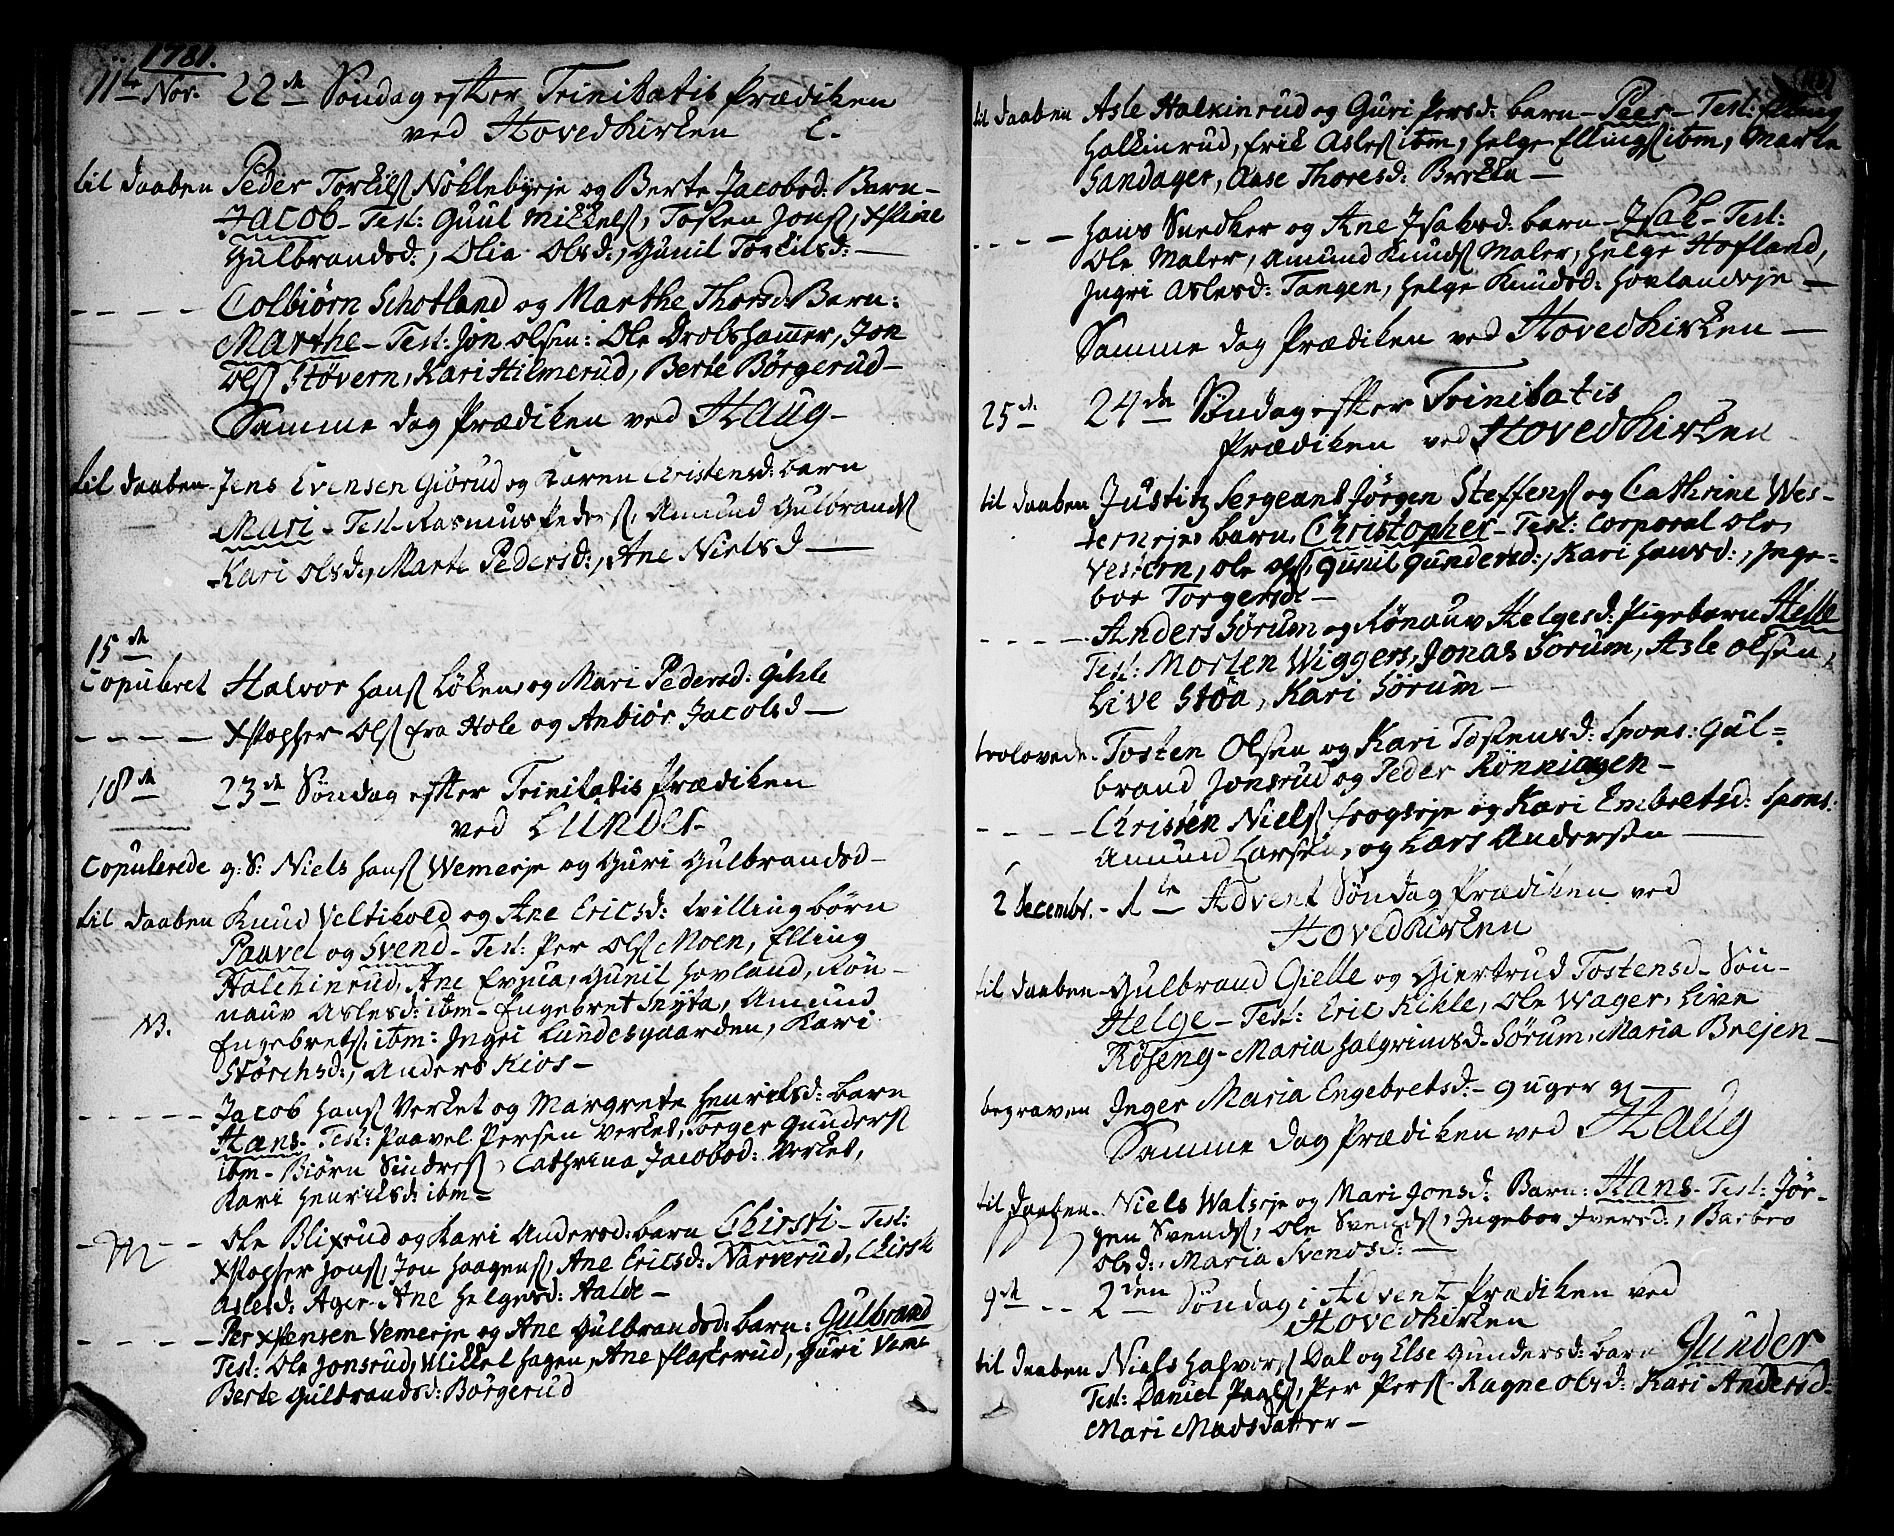 1781.
11te Nov. 22de Søndag efter Trinitatis Prædiken
ved Hovedkirken C.
til daaben Peder Torkilß Nöklebyeje og Berte Jacobsd: Barn -
Jacob - Test: Guul Mikkelß, Tosten Jonß, Xstine
Gulbrandsd:, Olia Olsd:, Gunil Torkilsd: -
- - - - Colbiörn Schotland og Marthe Thorsd: Barn:
Marthe - Test: Jon olsen: Ole Drolshamer, Jon
Olß Støvern, Kari Hilmerud, Berte Börgerud -
Samme dag Prædiken ved Haug -
til daaben - Jens Evensen Giörud og Karen Christensd: barn
Mari - Test - Rasmus Pederß, Amund Gulbrandß
Kari olsd:, Marte Pedersd:, Ane Nielsd -
15de
Copuleret Halvor Hanß Løken og Mari Pedersd: Gihle
- - - - Xstopher Olß fra Hole og Anbiör Jacobsd -
18de 23de Søndag efter Trinitatis Prædiken
ved Lunder -
Copulerede g: S: Niels Hanß Wemereje og Guri Gulbrandsd -
til daaben Knud Veltikold og Ane Ericsd: tvilling børn
Paavel og Svend - Test: Per Olß Moen, Elling
Halchinrud, Ane, Gunil Hovland, Røn-
nauv Aslesd: ibm - Engebret Snyta, Amund
NB. Engebretß ibm: Ingri Lundesgaarden, Kari
Störchsd:, Anders Kios -
- - - - Jacob Hanß Verket og Margrete Henriksd: barn
Hans - Test: Paavel Persen Verket, Torger Gunderß
ibm - Biörn Sindreß, Cathrina Jacobsd: Verket,
Kari Henriksd: ibm -
- - Ole Blixrud og Kari Andersd: barn Chirsti - Test:
Xstopher Jonß, Jon Haagenß, Ane Ericsd: Narverud, Chirsti
Aslesd: Ager - Ane Helgesd: Aalde -
- - - - Per Xstensen Vemereje og Ane Gulbrandsd: barn: Gulbrand
Test: Ole Jonsrud, Mikkel Hagen, Ane Flaskerud, Guri Vem-
Berte Gulbrandsd: Börgerud
til daaben Asle Halkinrud og Guri Persd: barn - Peer - Test: Elling
Halkinrud, Erik Asleß ibm, Helge Ellingß ibm, Marte
Sandager, Aase Thoresd: Brekka -
- - - - Hans Snedker og Ane Isaksd: barn - Isak - Test:
Ole Maler, Amund Knudß Maler, Helge Hofland,
Ingri Aslesd: Tangen, Helge Knudsd: Hovlandseje -
Samme dag Prædiken ved Hovedkirken -
25de 24de Søndag efter Trinitatis
Prædiken ved Hovedkirken
til daaben Justitz Sergeant Jörgen Steffenß og Cathrine Wes-
terneje barn, Christopher - Test: Corporal Ole
Vestern, Ole Olß, Gunil Gundersd:, Kari Hansd:, Inge-
bor Torgersd: -
- - - - Anders Sörum og Rönauv Helgesd: Pigebarn Helle
Test: Morten Wiggers, Jonas Sorum, Asle olsen,
Live Støa, Kari Sörum -
trolovede - Tosten Olsen og Kari Tostensd: Spons: Gul-
brand Jonsrud og Peder Rönningen -
- - - - Christen Nielß Frogseje og Kari Embretsd: Spons:
Amund Larsen, og Lars Andersen -
2 Decembr. - 1te Advent Søndag Prædiken ved
Hovedkirken
til daaben - Gulbrand Gielle og Giertrud Tostensd - Søn -
Helge - Test: Eric Kihle, Ole Wager, Live
Röseng - Maria Halgrimsd - Sörum, Maria Breien -
begraven Inger Maria Engebretsd: - 9 uger gl -
Samme Dag Prædiken ved Haug
til daaben - Niels Walseje og Mari Jonsd: Barn: Hans - Test: Jör-
gen Svendß, Ole Svendß, Ingebor Iversd:, Barbro
Olsd:, Maria Svendsd: -
9de - - 2den Søndag i Advent Prædiken ved
Hovedkirken
til daaben Niels Halvorß Dal og Else Gundersd: barn Gunder
Test: Daniel Paalß, Per Perß - Ragne Olsd: Kari Andersd:
Mari Madsdatter -